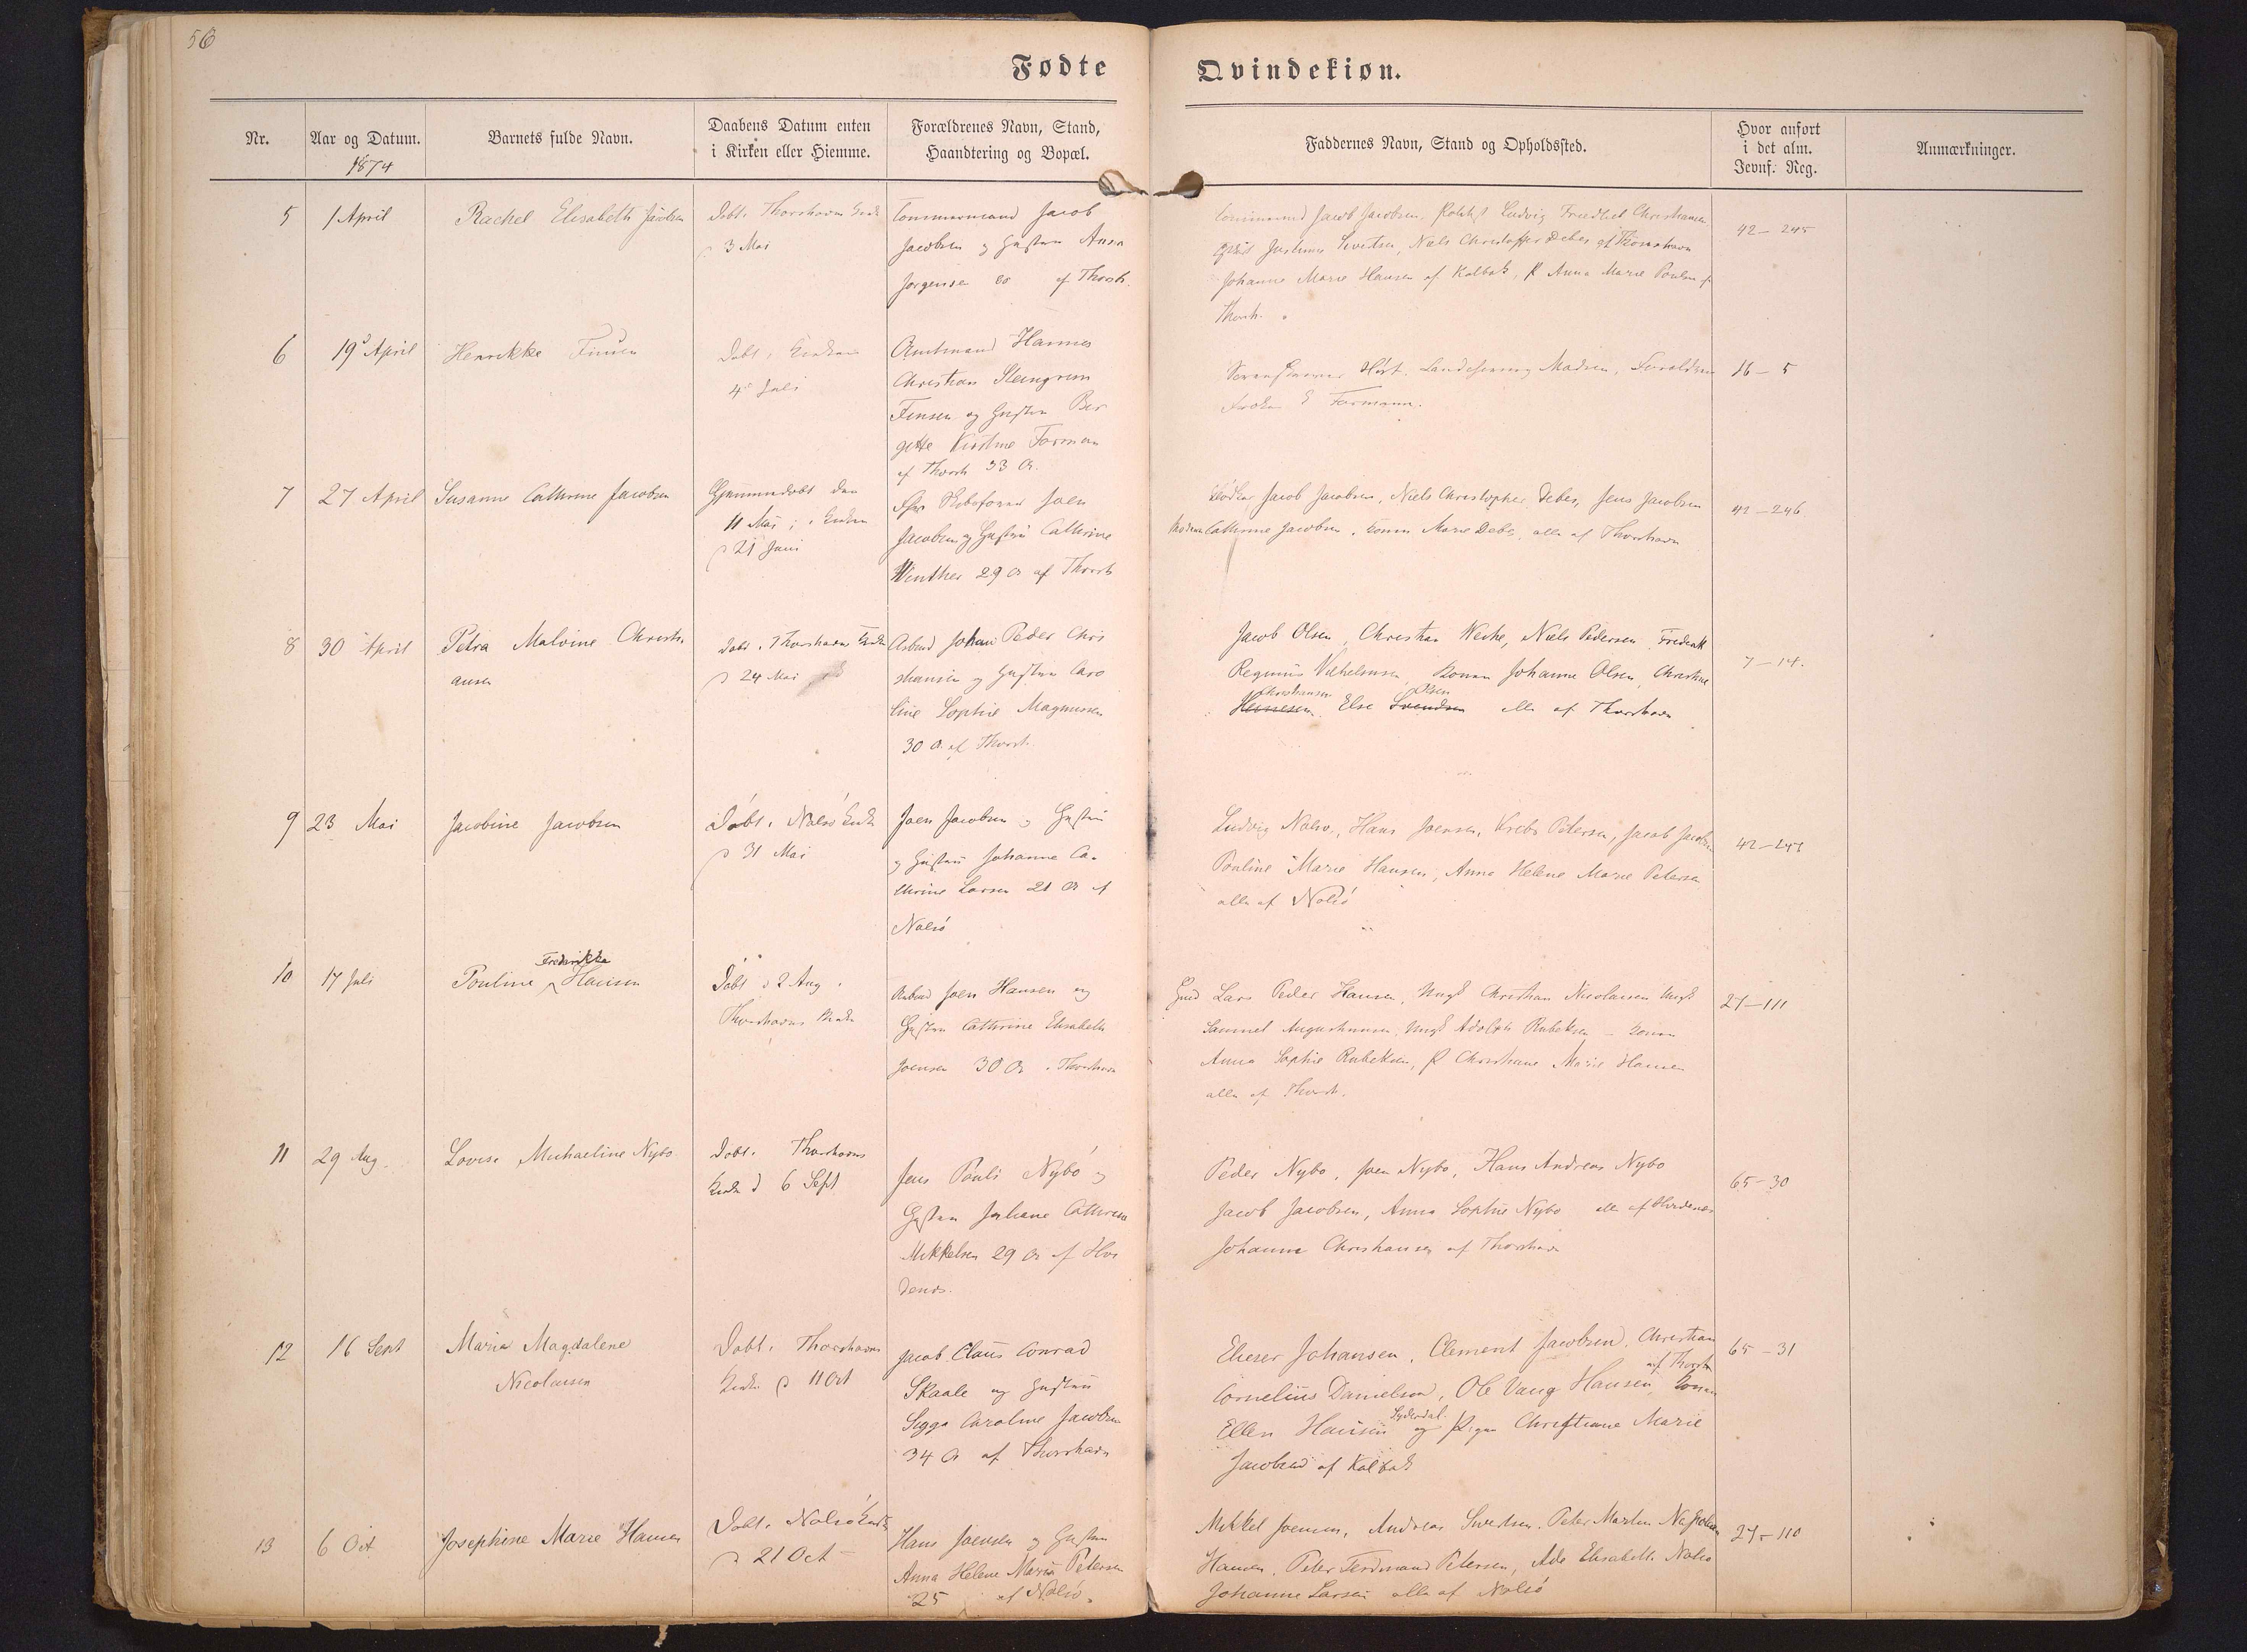 56
Fødte
Qvindekiøn.
Nr.
Aar og Datum.
1874
Barnets fulde Navn.
Daabens Datum enten
i Kirken eller Hiemme.
Forældrenes Navn, Stand,
Haandtering og Bopæl.
Faddernes Navn, Stand og Opholdssted.
Hvor anført
i det alm.
Jevnf. Reg.
Anmærkninger.
5
1 April
Rachel Elisabeth Jacobsen
Døbt i Thorshavns Kirke
3 Mai
Tømmermand Jacob
Jacobsen og Hustru Anna
Jørgensen af Thorsh.
Jacob Jacobsen, Ludvig Christiansen
Niels Christoffer Debes af Thorshavn
Johanne Marie Hansen af Kalbak, P Anna Marie Poulsen af
Thorsh.
42-245
6
19 April
Henrikke Finsen
Døbt i Kirken
4 Juli
Amtmand Hannes
Christian Steingrim
Finsen og Hustru Bir
gitte Kirstine Forman
af Thorsh 33 A.
Landfysicus Madsen, Forældrene
Frøken E Formann.
16-5
7
27 April
Susanne Cathrine Jacobsen
Hjemmedøbt den
11 Mai; i Kirken
21 Juni
Joen
Jacobsen og Hustru Cathrine
Winther 29 A af Thorsh
Jacob Jacobsen, Niels Christopher Debes, Jens Jacobsen
Cathrine Jacobsen, Konen Marie Debes, alle af Thorshavn
42-246
8
30 April
Petra Malvine Christi
ansen
Døbt i Thorshavns Kirke
24 Mai
Arbmd Johan Peder Chri
stiansen og Hustru Caro
line Sophie Magnussen
30 A. af Thorsh.
Jacob Olsen, Christian Weihe, Niels Pedersen, Frederik
Regnius Vilhelmsen Konen Johanne Olsen, Christine
Christiansen Olsen
Else Svendsen alle af Thorshavn
7-14.
9
23 Mai
Jacobine Jacobsen
Døbt i Nolsø Kirke
31 Mai
Joen Jacobsen og Hustru
og Hustru Johanne Ca-
thrine Larsen 21 A af
Nolsø
Ludvig Nolsø, Hans Joensen, Krebs Petersen, Jacob Jacobsen
Pouline Marie Hansen, Anna Helene Marie Petersen
alle af Nolsø
42-247
10
17 Juli
Frederikke
Pouline Hansen
Døbt d 2 Aug i
Thorshavns Kirke
Arbmd Joen Hansen og
Hustru Cathrine Elisabeth
Joensen 30 A. Thorshavn
Lars Peder Hansen, Ungk Christian Nicolaisen Ungk
Samuel Augustinussen, Ungk Adolph Rubeksen - Konen
Anna Sophie Rubeksen, P Christiane Marie Hansen
alle af Thorsh.
27-111
11
29 Aug.
Lovise Michaeline Nybo
Døbt i Thorshavns
Kirke d 6 Sept
Jens Pouli Nybo og
Hustru Juliane Cathrine
Mikkelsen 29 A af Hvi
denæs.
Peder Nybo, Joen Nybo, Hans Andreas Nybo
Jacob Jacobsen, Anna Sophie Nybo alle af Hvidenæs
Johanna Christiansen af Thorshavn
65-30
12
16 Sept
Maria Magdalene
Nicolaisen
Døbt i Thorshavns
Kirke 11 Oct
Jacob Claus Conrad
Skaale og Hustru
Sigga Caroline Jacobsen
34 A af Thorshavn
Elieser Johansen, Clement Jacobsen, Christian
af Thorsh
Cornelius Danielsen, Ole Vang Hansen, Konen
Sydredal.
Ellen Hansen og Pigen Christiane Marie
Jacobsen af Kalbak
65-31
13
6 Oct
Josephine Marie Hansen
Døbt i Nolsø Kirke
21 Oct
Hans Joensen og Hustru
Anna Helene Marie Petersen
25 af Nolsø.
Mikkel Joensen, Andreas Sivertsen, Peter Martin Napoleon
Hansen, Peter Ferdinand Petersen, Ada Elisabeth Nolsø
Johanne Larsen alle af Nolsø
27-110